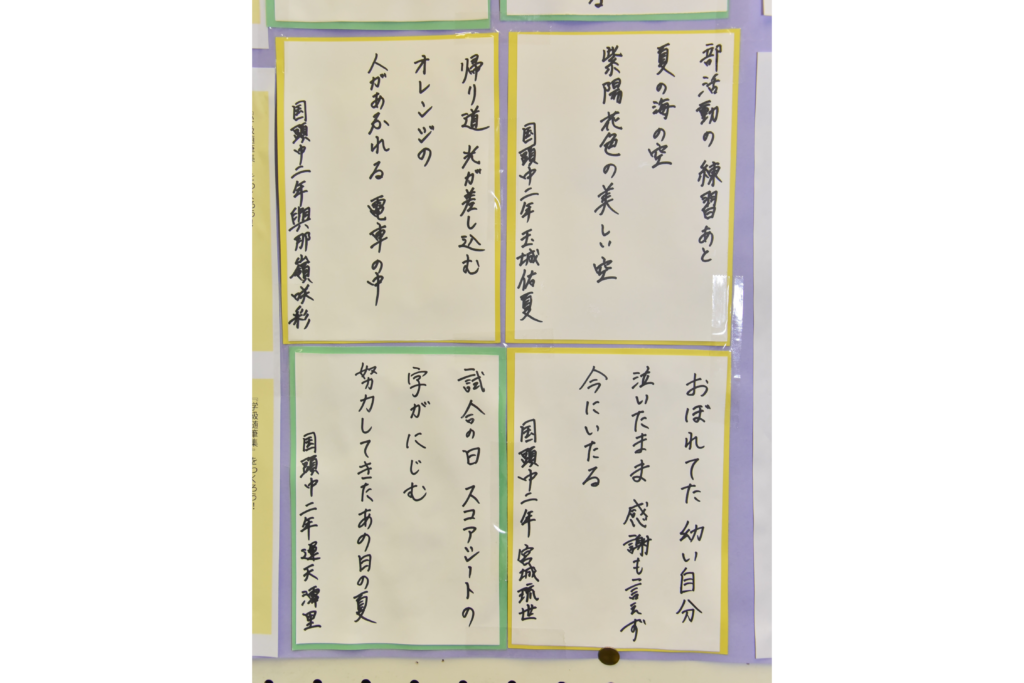 部活動の 練習あと
夏の海の空
紫陽花色の美しい空
国頭中二年 玉城佑夏
帰り道 光が差し込む
オレンジの
人があふれる 電車の中
国頭中二年 與那嶺咲彩
おぼれてた 幼い自分
泣いたまま 感謝も言えず
今にいたる
国頭中二年 宮城琉世
試合の日 スコアシートの
字がにじむ
努力してきたあの日の夏
国頭中 二年 運天澪里